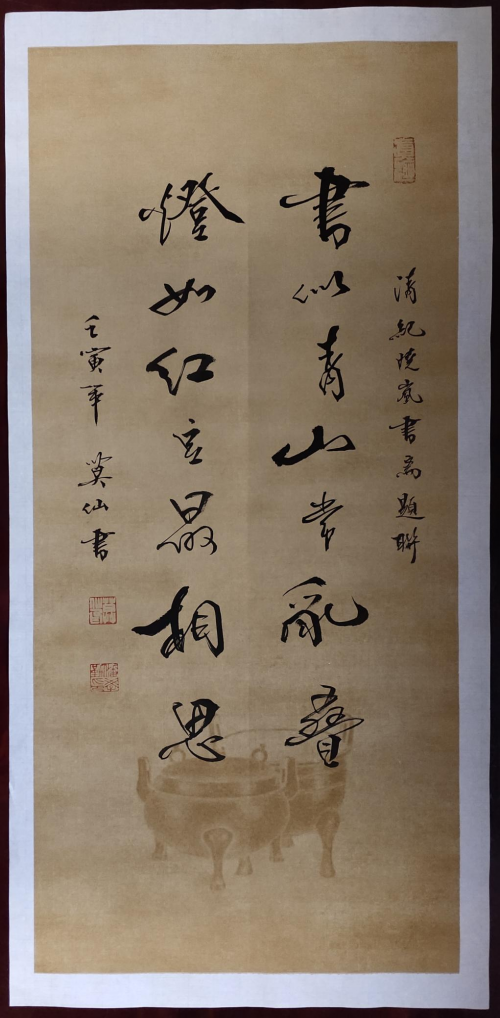 清紀晓嵐書斋題聯
書似青山常亂叠
燈如红豆最相思
壬寅年 莫仙書